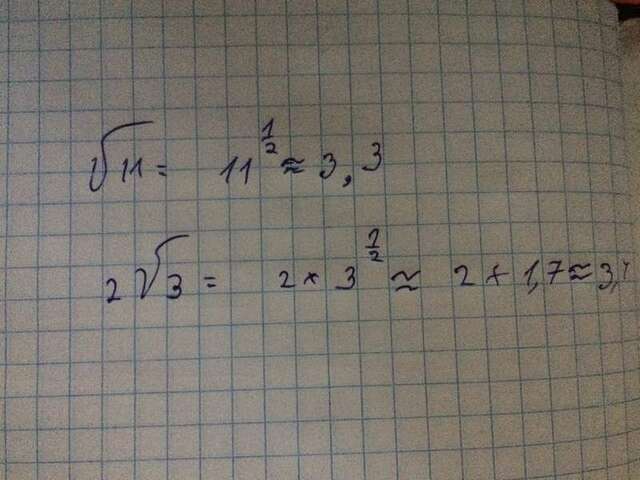 √11 = 11^(1/2) ≈ 3,3
2√3 = 2 × 3^(1/2) ≈ 2 × 1,7 ≈ 3,